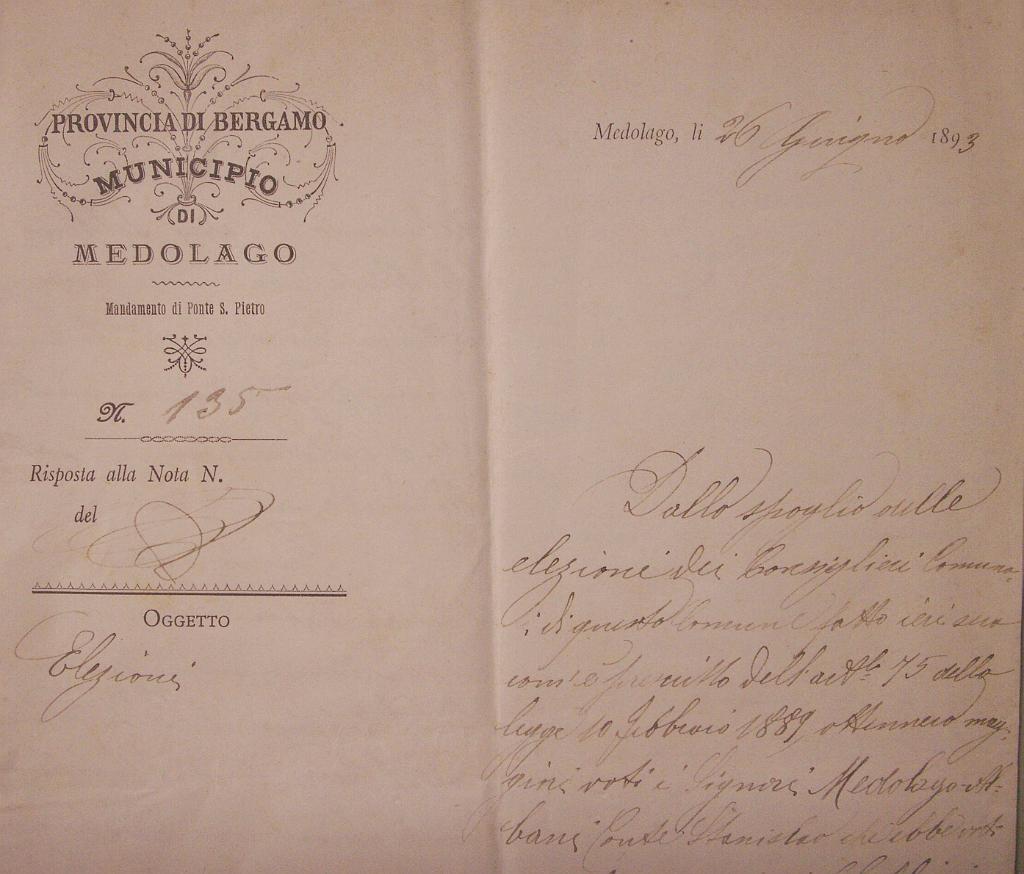 PROVINCIA DI BERGAMO
MUNICIPIO
DI
MEDOLAGO
Mandamento di Ponte S. Pietro
N. 135
Risposta alla Nota N.
del
OGGETTO
Elezioni
Medolago, li 26 Giugno 1893
Dallo spoglio delle
elezioni dei Consiglieri Comuna-
li di questo Comune fatto ieri sera
com'è prescritto dell'art.lo 75 della
legge 10 febbraio 1889 ottennero mag-
giori voti i Signori Medolago-Al-
bani Conte Stanislao che ebbe voti